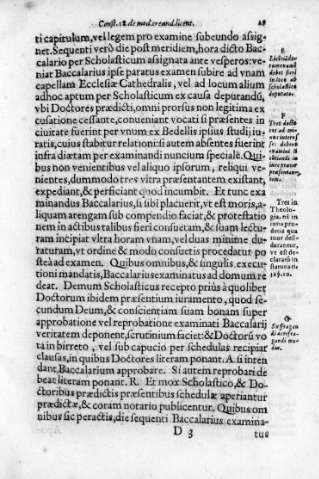 Const. 18. de mod. creand. licent. 28
ti capitulum, vel legem pro examine subeundo assig-
net. Sequenti verò die post meridiem, hora dicto Bac-
calario per Scholasticum assignata ante vesperos: ve-
niat Baccalarius ipse paratus examen subire ad vnam
capellam Ecclesiæ Cathedralis, vel ad locum alium
adhoc aptum per Scholasticum ex causa deputandũ,
vbi Doctores prædicti, omni prorsus non legitima ex
cusatione cessante, conueniant vocati si præsentes in
ciuitate fuerint per vnum ex Bedellis ipsius studij iu-
ratis, cuius stabitur relationi: si autem absentes fuerint
infra diætam per examinandi nuncium speciale. Qui-
bus non venientibus vel aliquo ipsorum, reliqui ve-
nientes, dummodo tres vltra præsentantem existant,
expediant, & perficiant quod incumbit. Et tunc exa
minandus Baccalarius, si sibi placuerit, vt est moris, a-
liquam arengam sub compendio faciat, & protestatio
nem in actibus talibus fieri consuetam, & suam lectu-
ram incipiat vltra horam vnam, vel duas minime du-
raturam, vt ordine & modo consuetis procedatur po
steà ad examen. Quibus omnibus, & singulis, execu-
tioni mandatis, Baccalarius examinatus ad domum re
deat. Demum Scholasticus recepto priùs à quolibet
Doctorum ibidem præsentium iuramento, quod se-
cundum Deum, & conscientiam suam bonam super
approbatione vel reprobatione examinati Baccalarij
veritatem deponent, scrutinium faciet: & Doctorũ vo
ta in birreto, vel sub capucio per schedulas recipiat
clausas, in quibus Doctores literam ponant. A. si inten
dant, Baccalarium approbare. Si autem reprobari de
beat literam ponant. R. Et mox Scholastico, & Do-
ctoribus prædictis præsentibus schedulæ aperiantur
prædictæ, & coram notario publicentur. Quibus om
nibus sic peractis, die sequenti Baccalarius examina-
D 3 tus
E
deputato.
P
Tres docto
Tres in
Theolo-
gia,
Q
Suffragan
di